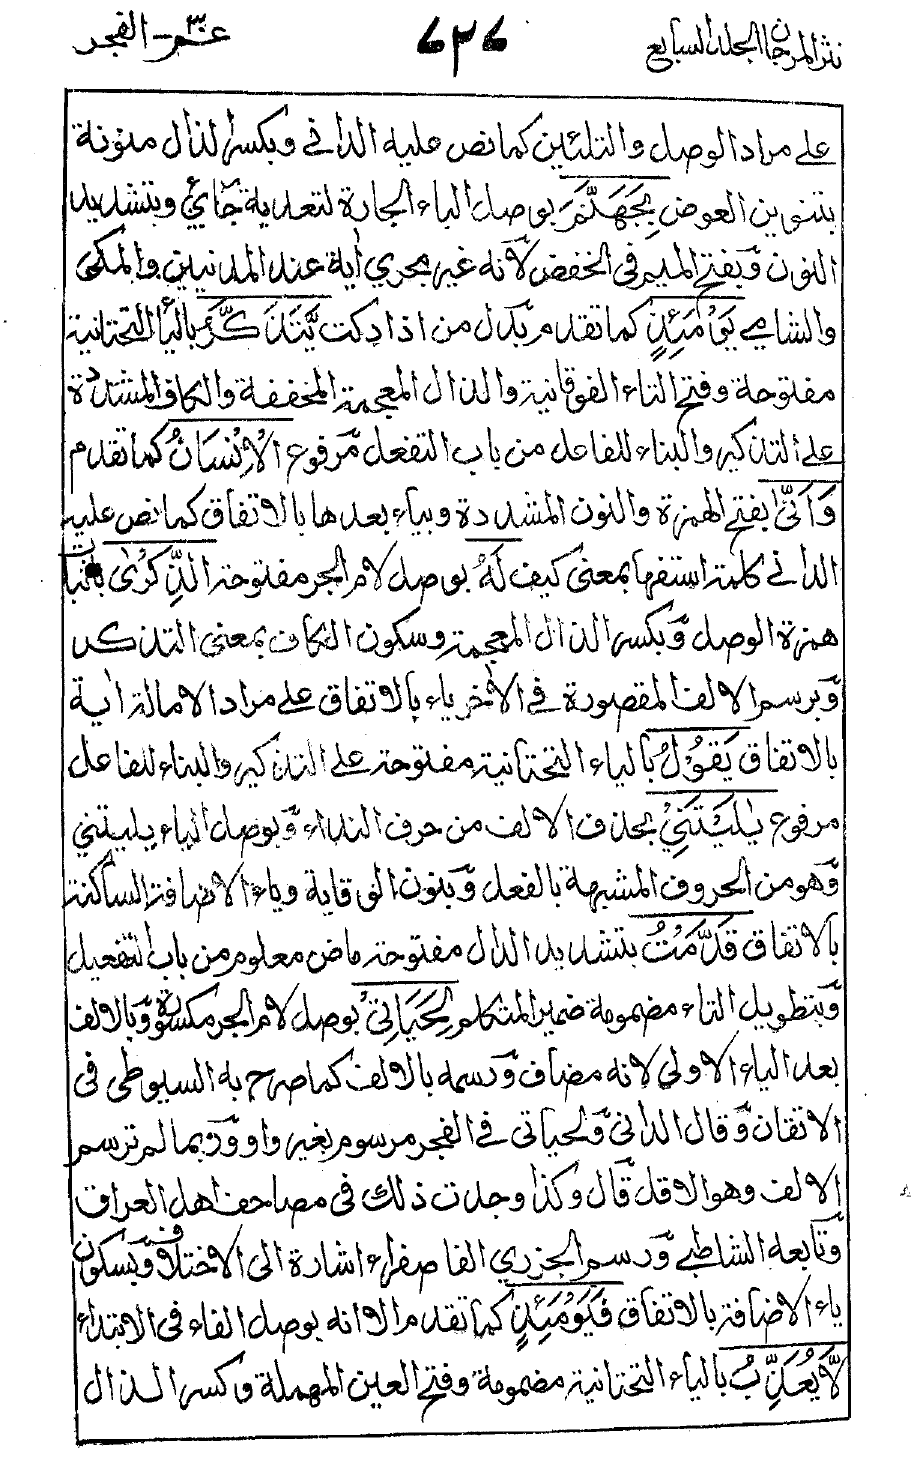 نثر المرجان الجلد السابع
٧٣٧
عم ٣٠ - الفجر
على مراد الوصل والتلئين كما نص عليه الداني وبكسر الذال منونة
بتنوين العوض بِجَهَنَّمَ بوصل الباء الجارة لتعدية جائ وبتشديد
النون وبفتح الميم في الخفض لأنه غير مجرى أية عند المدنيين والمكى
والشامي يَوْمَئِذٍ كما تقدم بدل من اذا دكت يَّتَذَكَّرُ بالياء التحتانية
مفتوحة وفتح التاء الفوقانية والذال المعجمة المخففة والكاف المشددة
على التذكير والبناء للفاعل من باب التفعل مرفوع الْاِنْسَانُ كما تقدم
وَاَنّٰى بفتح الهمزة والنون المشددة وبياء بعدها بالاتفاق كما نص عليه
الداني كلمة استفهام بمعنى كيف لَهُ بوصل لام الجر مفتوحة الذِّكْرٰى باثبات
همزة الوصل وبكسر الذال المعجمة وسكون الكاف بمعنى التذكر
وبرسم الالف المقصورة في الأخر ياء بالاتفاق على مراد الامالة اية
بالاتفاق يَقُوْلُ بالياء التحتانية مفتوحة على التذكير والبناء للفاعل
مرفوع يٰلَيْتَنِيْ بحذف الالف من حرف النداء وبوصل الياء بليتني
وهو من الحروف المشبهة بالفعل وبنون الوقاية وياء الاضافة الساكنة
بالاتفاق قَدَّمْتُ بتشديد الدال مفتوحة ماض معلوم من باب التفعيل
وبتطويل التاء مضمومة ضمير المتكلم لِحَيَاتِيْ بوصل لام الجر مكسورة وبالالف
بعد الياء الاولى لانه مضاف ورسمه بالالف كما صرح به السيوطي في
الاتقان وقال الداني ولحياتى في الفجر مرسوم بغير واو وربما لم ترسم
الالف وهو الاقل قال وكذا وجدت ذلك في مصاحف اهل العراق
وتابعه الشاطبي ورسم الجزري الفا صفراء اشارة الى الاختلاف وبسكون
ياء الاضافة بالاتفاق فَيَوْمَئِذٍ كما تقدم الا انه بوصل الفاء في الابتداء
لَّا يُعَذِّبُ بالياء التحتانية مضمومة وفتح العين المهملة وكسر الذال